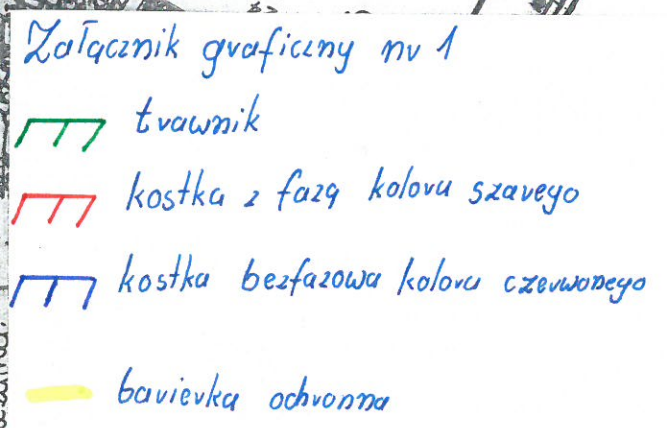 Załącznik graficzny nr 1
trawnik
kostka z fazą koloru szarego
kostka bezfazowa koloru czerwonego
barierka ochronna